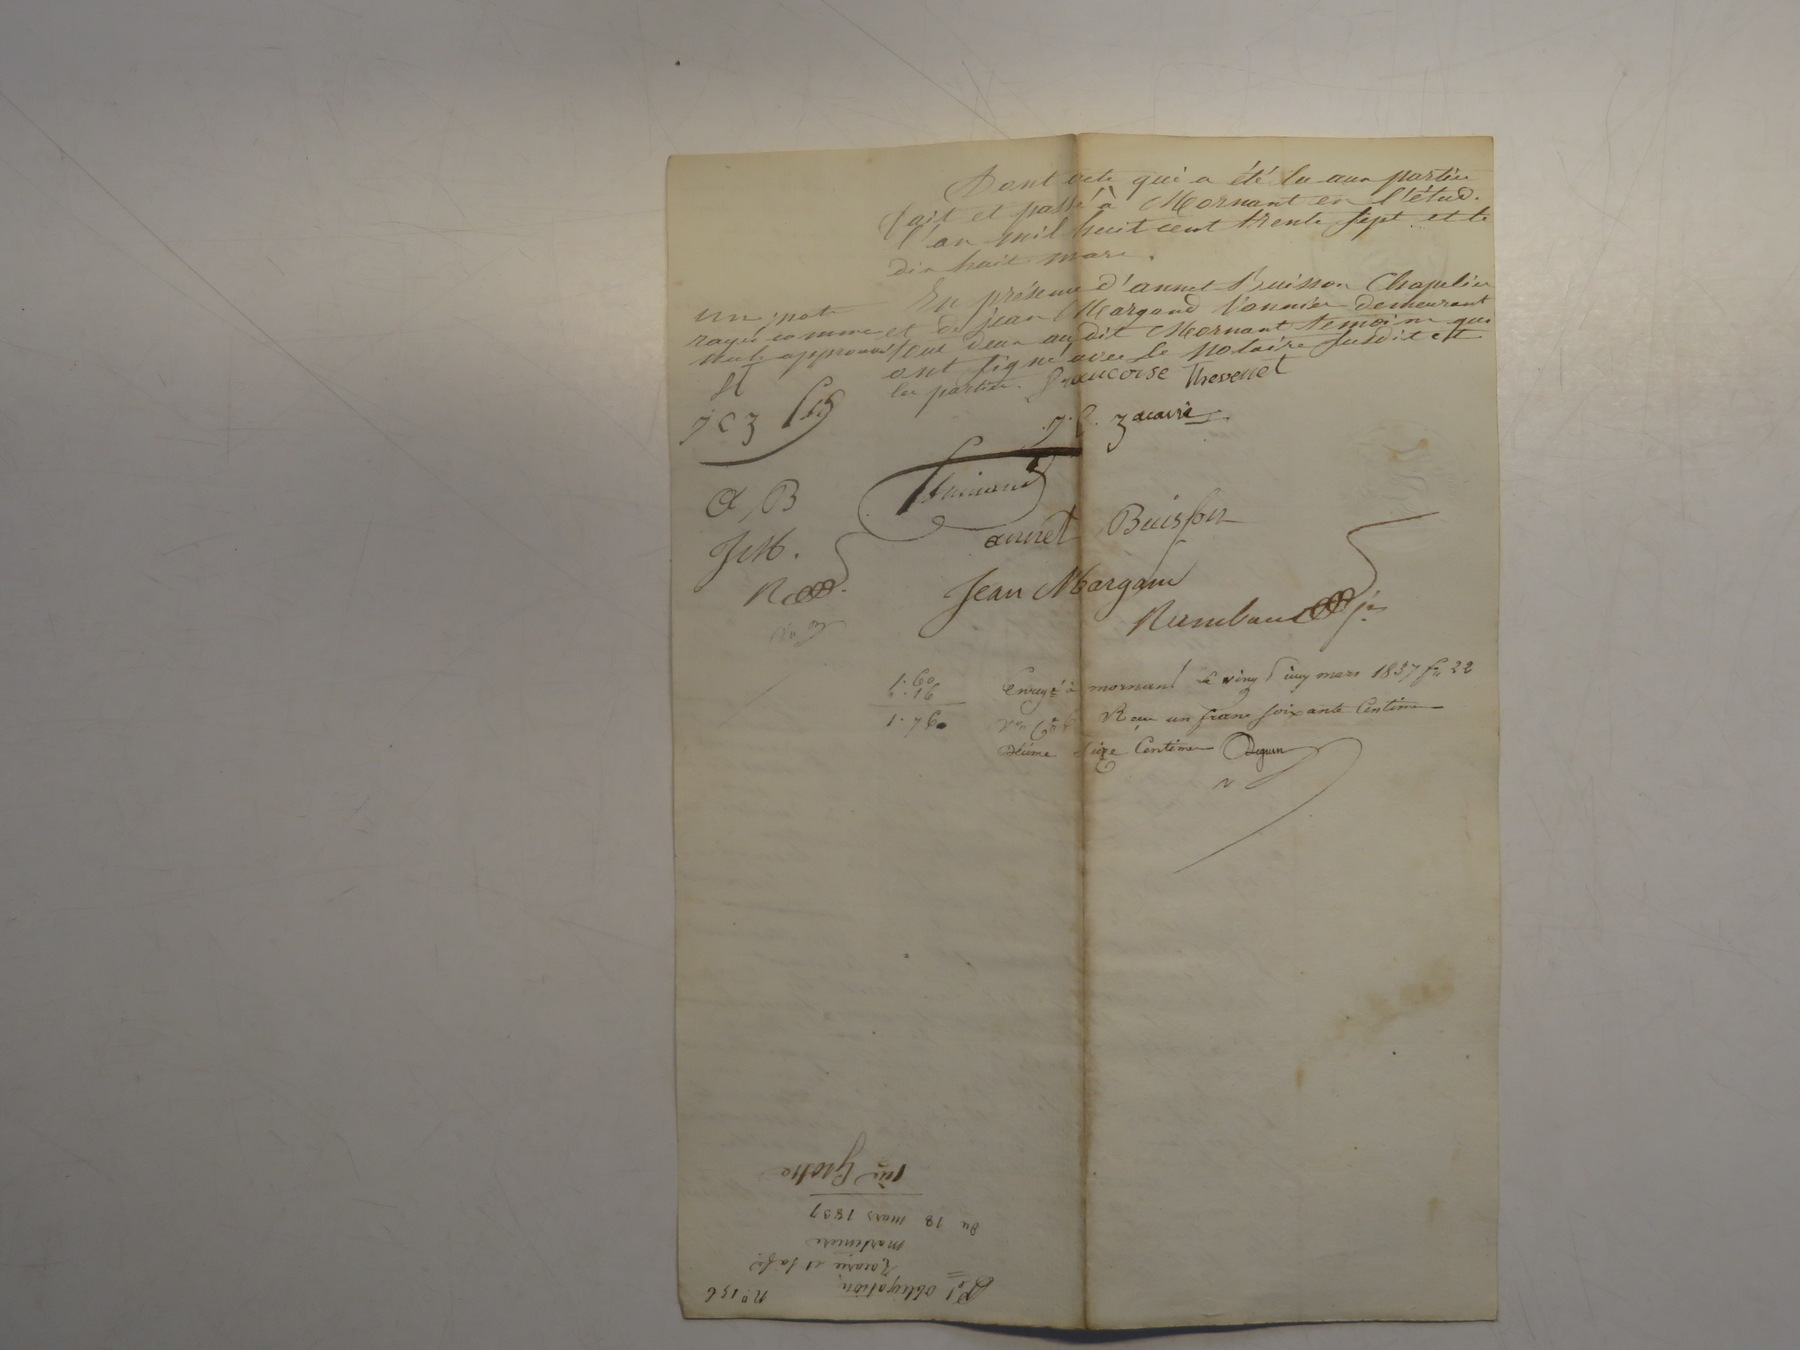 Dont acte qui a été lu aux parties
fait et passé à Mornant en l'étude
l'an mil huit cent trente sept et le
dix huit mars.
En présence d'annet Buisson Chapelier
et de jean Margand Vannier demeurant
tous deux audit Mornant temoins qui
ont signé avec le notaire susdit et
les parties.
un mot
rayé comme
nul approuvé
françoise Thevenet
j C z
j. C. zacarie
a, B
annet Buisson
J M.
Jean Margand
Rambaud jne
1.60
.16
1.76
Enregé à mornant le vingt cinq mars 1837 fo 22
Reçu un franc soixante Centimes
dixme seize Centimes
no 156
obligation
Zacarie et sa fe
du 18 mars 1837
1ère Grosse